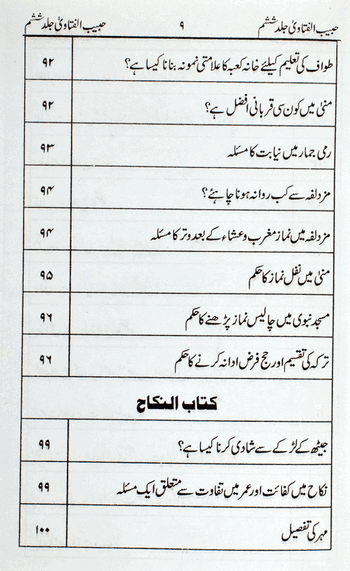 حبیب الفتاویٰ جلد ششم ۹ حبیب الفتاویٰ جلد ششم
طواف کی تعلیم کیلئے خانہ کعبہ کا علامتی نمونہ بنانا کیسا ہے؟ ۹۲
منیٰ میں کون سی قربانی افضل ہے؟ ۹۲
رمی جمار میں نیابت کا مسئلہ ۹۳
مزدلفہ سے کب روانہ ہونا چاہئے؟ ۹۴
مزدلفہ میں نماز مغرب و عشاء کے بعد وتر کا مسئلہ ۹۴
منیٰ میں نفل نماز کا حکم ۹۵
مسجد نبوی میں چالیس نماز پڑھنے کا حکم ۹۶
ترکہ کی تقسیم اور حج فرض ادا نہ کرنے کا حکم ۹۶
کتاب النکاح
جیٹھ کے لڑکے سے شادی کرنا کیسا ہے؟ ۹۹
نکاح میں کفائت اور عمر میں تفاوت سے متعلق ایک مسئلہ ۹۹
مہر کی تفصیل ۱۰۰